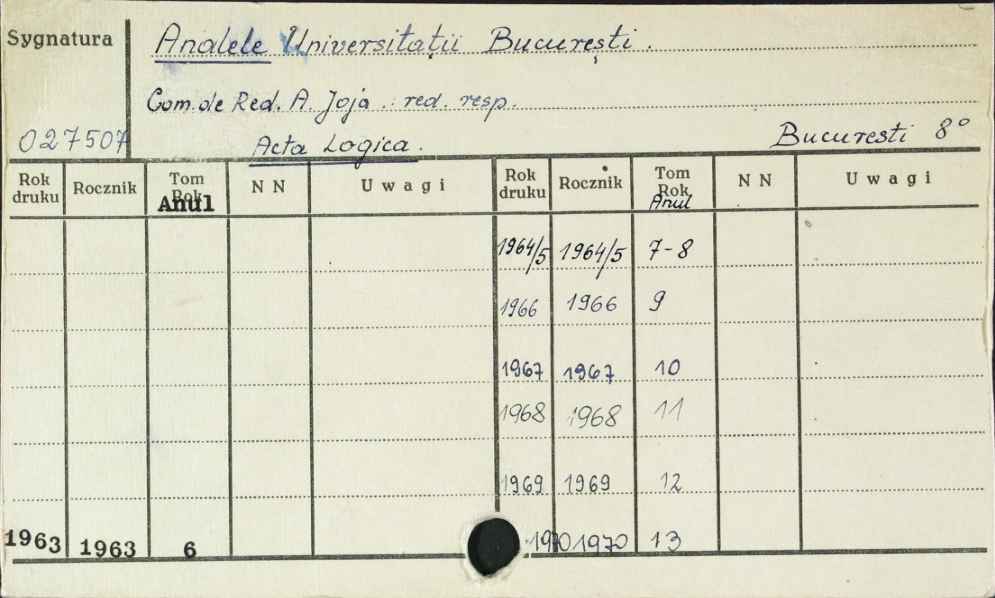 Sygnatura
Analele Universitaţii Bucureşti.
Com. de Red. A. Joja. red. resp.
027507
Acta Logica.
Bucuresti 8°
Rok druku Rocznik Tom Rok Anul NN Uwagi Rok druku Rocznik Tom Rok Anul NN Uwagi
1964/5 1964/5 7-8
1966 1966 9
1967 1967 10
1968 1968 11
1969 1969 12
1963 1963 6 1970 1970 13